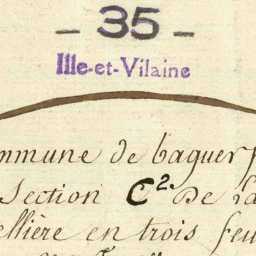 – 35 –
Ille-et-Vilaine
mmune de baguer p
Section C² De la
ellière en trois feu